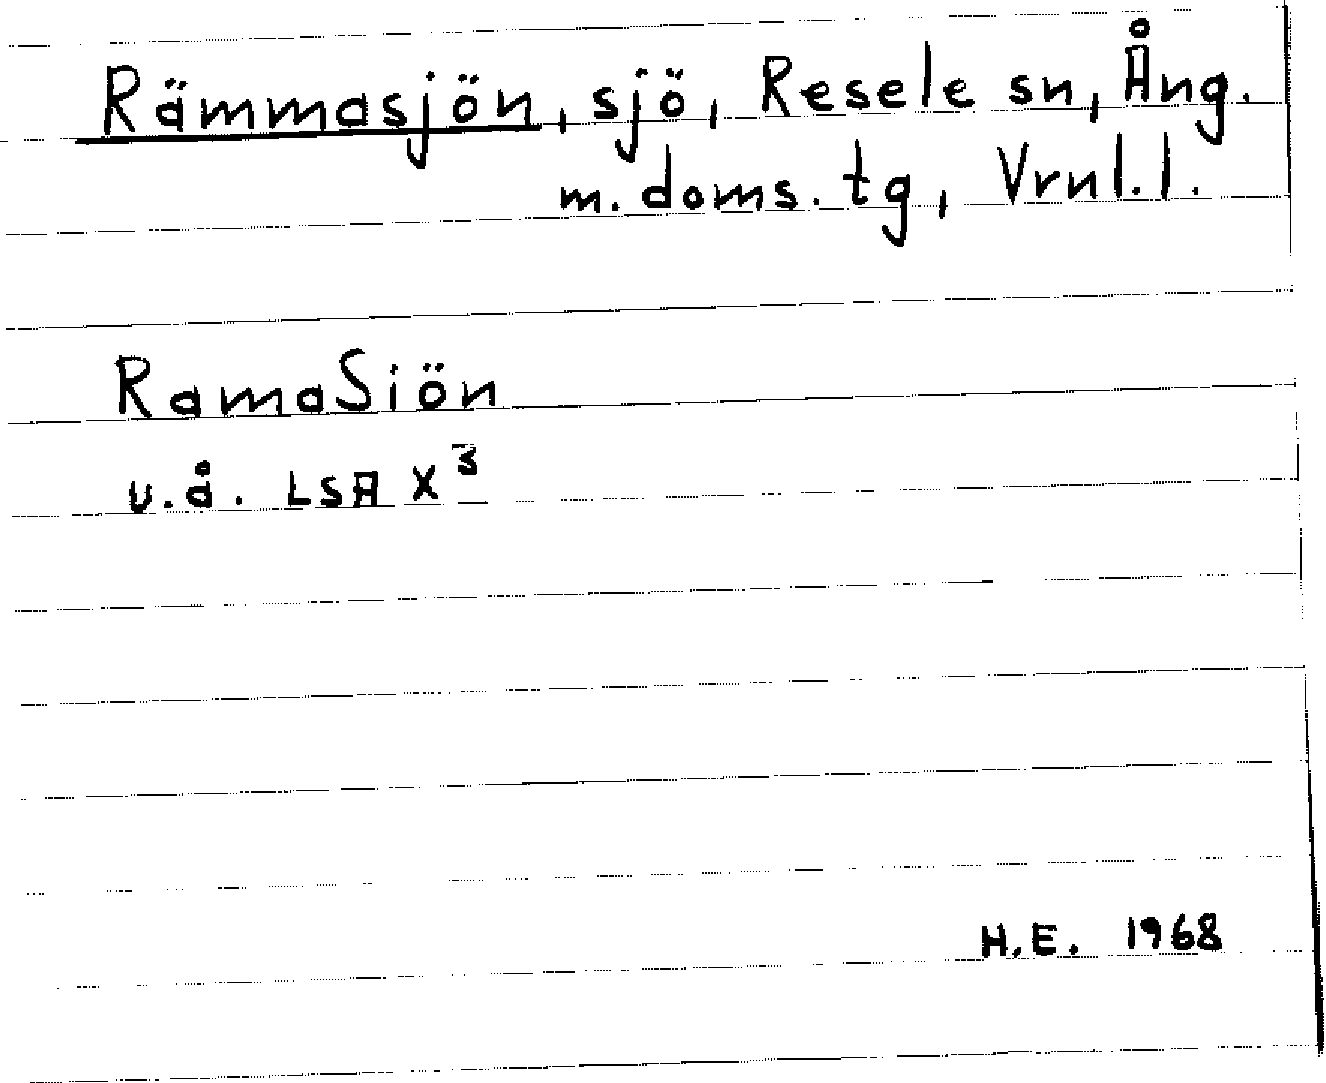 Rämmasjön, sjö, Resele sn, Ång.
m. doms. tg, Vrnl. l.
RamaSiön
u.å. LSA X³
H.E. 1968